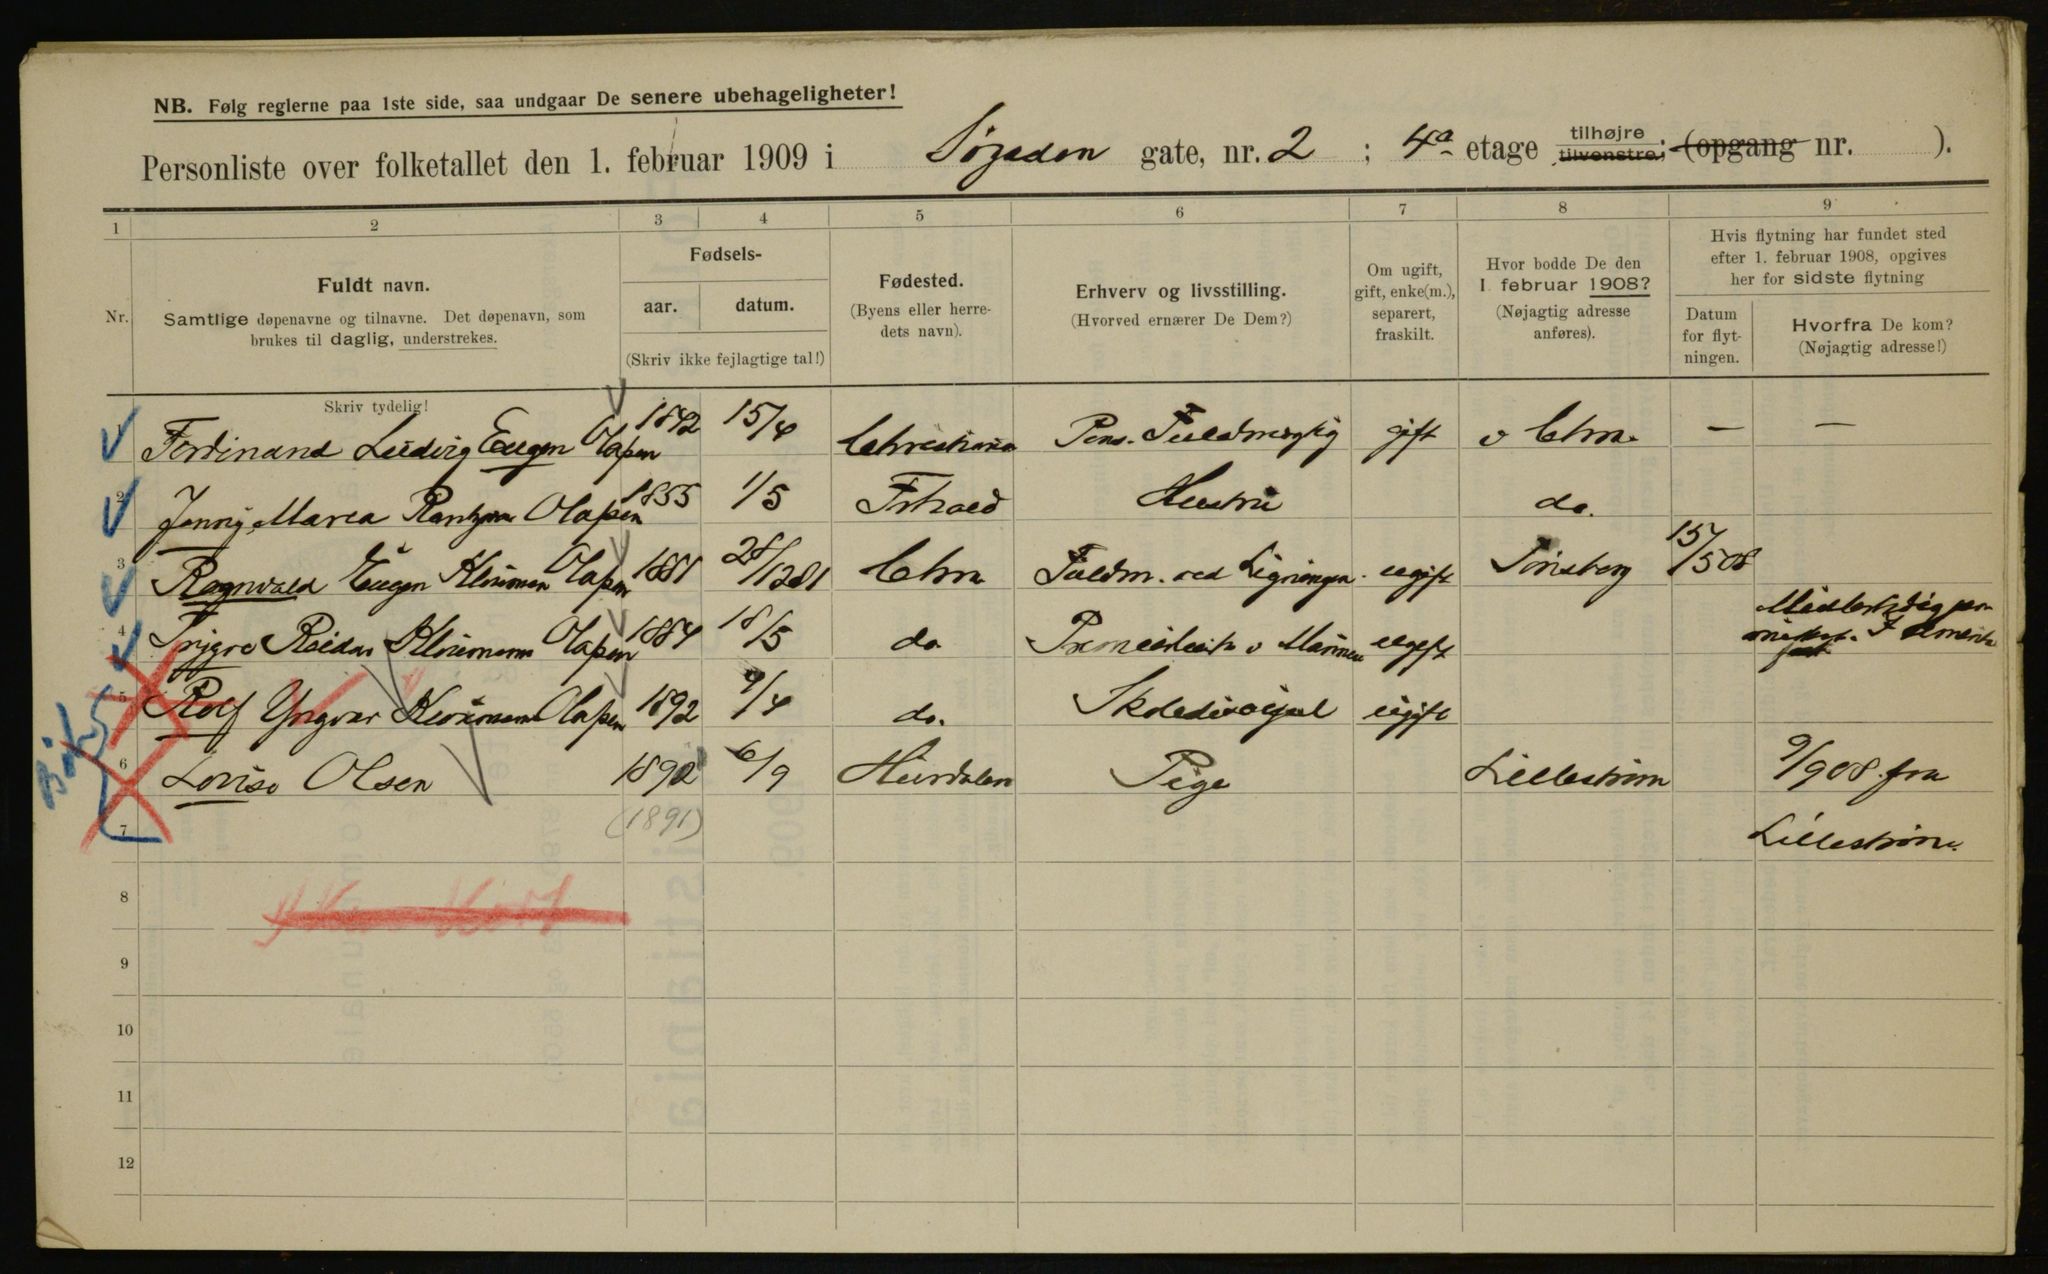 NB. Følg reglerne paa 1ste side, saa undgaar De senere ubehageligheter!
Personliste over folketallet den 1. februar 1909 i Søgaden gate, nr. 2 ; 4a etage tilhøjre tilvenstre; (opgang nr. ).
1 2 3 4 5 6 7 8 9
Nr.
Fuldt navn.
Samtlige døpenavne og tilnavne. Det døpenavn, som
brukes til daglig, understrekes.
Skriv tydelig!
Fødsels-
aar. datum.
(Skriv ikke fejlagtige tal!)
Fødested.
(Byens eller herre-
dets navn).
Erhverv og livsstilling.
(Hvorved ernærer De Dem?)
Om ugift,
gift, enke(m.),
separert,
fraskilt.
Hvor bodde De den
1. februar 1908?
(Nøjagtig adresse
anføres).
Hvis flytning har fundet sted
efter 1. februar 1908, opgives
her for sidste flytning
Datum
for flyt-
ningen.
Hvorfra De kom?
(Nøjagtig adresse!)
1 Ferdinand Ludvig Eugen Olafsen 1842 15/4 Christiania Pens. Fuldmægtig gift Chra. — —
2 Jenny Marea Olafsen 1855 1/5 Frhald Hustru do.
3 Ragnvald Eugen Klouman Olafsen 1881 28/1281 Chra Fuldm. ved Ligningen ugift Tønsberg 15/508
4 Trygve Reidar Klouman Olafsen 1884 18/5 do Premierløit v Marinen ugift
5 Rolf Yngvar Klouman Olafsen 1892 9/4 do. Skolediscipel ugift
6 Lovise Olsen 1892 6/9 Hurdalen Pige Lillestrøm 9/908 fra
7 (1891) Lillestrøm.
8
9
10
11
12